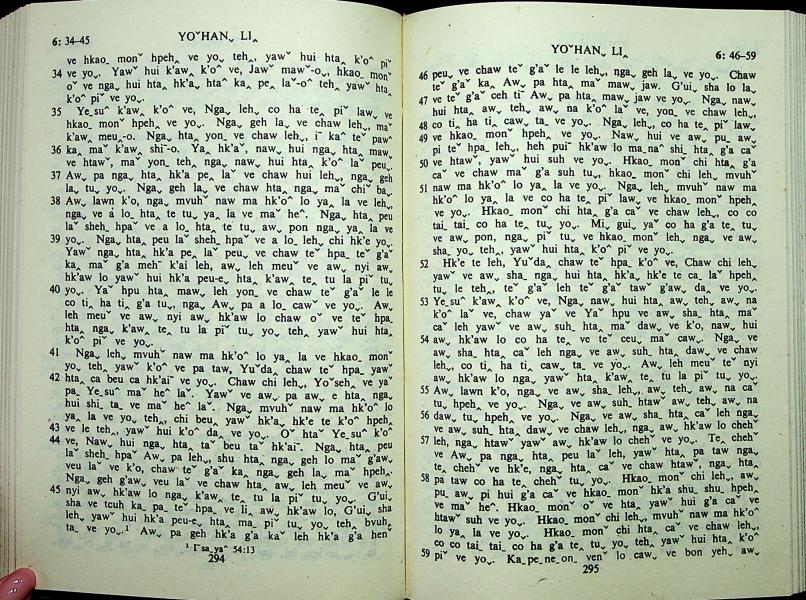 6: 34-45
YOˇHAN˯ LI˰
ve hkao_ monˇ hpeh˰ ve yo˯ teh˰, yawˇ hui hta˰ k'o^ piˇ
34 ve yo˯. Yawˇ hui k'aw˰ k'o^ ve, Jawˇ mawˇ-o˯, hkao_ monˇ
oˇ ve nga˯ hui hta˰ hk'a˰ hta^ ka˰ pe˰ laˇ-o^ teh˰ yawˇ hta˰
k'o^ piˇ ve yo˯.
35 Ye_suˇ k'aw˰ k'o^ ve, Nga˯ leh˯ co ha te˰ piˇ law˯ ve
hkao_ monˇ hpeh˰ ve yo˯. Nga˯ geh la˯ ve chaw leh˯, maˇ
k'aw˰ meu˰-o. Nga˯ hta˰ yon_ ve chaw leh˯, iˉ kaˆ teˇ pawˆ
36 ka˰ maˇ k'aw˰ shiˉ-o. Ya˰ hk'aˇ, naw˯ hui nga˯ hta˰ maw˰
ve htawˇ, maˇ yon_ teh˰ nga˯ naw˯ hui hta˰ k'o^ laˇ peu˯.
37 Aw˯ pa nga˯ hta˰ hk'a pe˰ laˇ ve chaw hui leh˯, nga˯ geh
la˯ tu˯ yo˯. Nga˯ geh la˯ ve chaw hta˰ nga˯ maˇ chiˇ ba˯.
38 Aw˯ lawn k'o, nga˯ mvuhˇ naw ma hk'o^ lo ya˰ la ve leh˯,
nga˯ ve a˯ lo_ hta˰ te tu˯ ya˰ la ve maˇ heˆ. Nga˯ hta˰ peu
laˇ sheh_ hpaˇ ve a˯ lo_ hta˰ te tu˯ aw˯ pon nga˯ ya˰ la ve
39 yo˯. Nga˯ hta˰ peu laˇ sheh_ hpaˇ ve a˯ lo_ leh˯ chi hk'e yo˯.
Yawˇ nga˯ hta˰ hk'a pe˰ laˇ peu˯ ve chaw teˇ hpa_ teˇ g'aˇ
ka˰ maˇ g'a mehˉ k'ai leh˯ aw˯ leh meuˇ ve aw˯ nyi aw˯
hk'aw lo yawˇ hui hk'a peu-e˯ hta˰ k'aw˰ te˰ tu la piˇ tu˯
40 yo˯. Yaˇ hpu hta˰ maw˰ leh yon_ ve chaw teˇ g'aˇ le le
co ti˰ ha ti˰ g'a tu˯, nga˯ Aw˯ pa a˯ lo_ caw˯ ve yo˯. Aw˯
leh meuˇ ve aw˯ nyi aw˯ hk'aw lo chaw oˇ ve teˇ hpa_
hta˰ nga˯ k'aw˰ te˰ tu la piˇ tu˯ yo˯ teh˰ yawˇ hui hta˰
k'o^ piˇ ve yo˯.
41 Nga˯ leh˯, mvuhˇ naw ma hk'o^ lo ya˰ la ve hkao_ monˇ
yo˯ teh˰ yawˇ k'o^ ve pa taw˯ Yuˇda˯ chaw teˇ hpa_ yawˇ
42 hta˰ ca beu ca hk'aiˉ ve yo˯. Chaw chi leh˯, Yoˇseh˯ ve yaˇ
pa_ Ye_suˇ maˇ heˆ laˇ. Yawˇ ve aw˯ pa aw˯ e hta˰ nga˯
hui shi_ ta˯ ve maˇ heˆ laˇ. Nga˯ mvuhˇ naw ma hk'o^ lo
ya˰ la ve yo˯ teh˰, chi beu˯ yawˇ hk'a˰ hk'e te k'o^ hpeh˰
43 ve le teh˰ yawˇ hui k'oˆ da˰ ve yo˯. Oˇ htaˇ Ye_suˇ k'oˆ
44 ve, Naw˯ hui nga˯ hta˰ taˇ beu taˇ hk'aiˉ. Nga˯ hta˰ peu
laˇ sheh_ hpaˇ Aw˯ pa leh˯, shu hta˰ nga˯ geh lo maˇ g'aw˯
veu la˯ ve k'o, chaw teˇ g'aˇ ka˰ nga˯ geh la˯ maˇ hpeh˰.
Nga˯ geh g'aw˯ veu la˯ ve chaw hta˰ aw˯ leh meuˇ ve aw˯
45 nyi aw˯ hk'aw lo nga˯ k'aw˰ te˰ tu la piˇ tu˯ yo˯. G'ui˯
sha ve tcuh ka_ pa_ teˇ hpa_ ve li˰ aw˯ hk'aw lo, G'ui˯ sha
leh˯ yawˇ hui hk'a peu-e˯ hta˰ ma˯ piˇ tu˯ yo˯ teh˰ bvuh˰
ta˯ ve yo˯.¹ Aw˯ pa geh hk'a g'a kaˇ leh hk'a g'a henˇ
¹ Iˉsa_yaˆ 54:13
294
YOˇHAN˯ LI˰
6: 46-59
46 peu˯ ve chaw teˇ g'aˇ le le leh˯, nga˯ geh la˯ ve yo˯. Chaw
teˇ g'aˇ ka˰ Aw˯ pa hta˰ maˇ maw˰ jaw. G'ui˯ sha lo la˯
47 ve teˇ g'aˇ ceh tiˉ Aw˯ pa hta˰ maw˰ jaw ve yo˯. Nga˯ naw˯
hui hta˰ aw˯ teh˯ aw˯ na k'o^ laˇ ve, yon_ ve chaw leh˯,
48 co ti˰ ha ti˰ caw˯ ta˯ ve yo˯. Nga˯ leh˯, co ha te˰ piˇ law˯
49 ve hkao_ monˇ hpeh˰ ve yo˯. Naw˯ hui ve aw˯ pu_ aw˯
pi_ teˇ hpa_ leh˯, heh puiˉ hk'aw lo ma_naˆ shi_ hta˰ g'a caˇ
50 ve htawˇ, yawˇ hui suh ve yo˯. Hkao_ monˇ chi hta˰ g'a
caˇ ve chaw maˇ g'a suh tu˯, hkao_ monˇ chi leh˯ mvuhˇ
51 naw ma hk'o^ lo ya˰ la ve yo˯. Nga˯ leh˯ mvuhˇ naw ma
hk'o^ lo ya˰ la ve co ha te˰ piˇ law˯ ve hkao_ monˇ hpeh˰
ve yo˯. Hkao_ monˇ chi hta˰ g'a caˇ ve chaw leh˯, co co
tai_ tai_ co ha te˰ tu˯ yo˯. Mi˰ gui˰ yaˇ co ha g'a te˰ tu˯
ve aw˯ pon, nga˯ piˇ tu˯ ve hkao_ monˇ leh˯ nga˯ ve aw˯
sha_ yo˯ teh˰ yawˇ hui hta˰ k'o^ piˇ ve yo˯.
52 Hk'e te leh˯ Yuˇda˯ chaw teˇ hpa_ k'o^ ve, Chaw chi leh˯
yawˇ ve aw˯ sha_ nga˯ hui hta˰ hk'a˰ hk'e te ca˯ laˇ hpeh˰
tu˯ le teh˰ teˇ g'aˇ leh teˇ g'aˇ tawˇ g'aw˯ da˰ ve yo˯.
53 Ye_suˇ k'aw˰ k'o^ ve, Nga˯ naw˯ hui hta˰ aw˯ teh˯ aw˯ na
k'o^ laˇ ve, chaw yaˇ ve Yaˇ hpu ve aw˯ sha_ hta˰ maˇ
caˇ leh yawˇ ve aw˯ suh_ hta˰ maˇ daw˯ ve k'o, naw˯ hui
54 aw˯ hk'aw lo co ha te˰ ve teˇ ceu˰ maˇ caw˯. Nga˯ ve
aw˯ sha_ hta˰ caˇ leh nga˯ ve aw˯ suh_ hta˰ daw˯ ve chaw
leh˯, co ti˰ ha ti˰ caw˯ ta˯ ve yo˯. Aw˯ leh meuˇ teˇ nyi
aw˯ hk'aw lo nga˯ yawˇ hta˰ k'aw˰ te˰ tu la piˇ tu˯ yo˯.
55 Aw˯ lawn k'o, nga˯ ve aw˯ sha_ leh˯, aw˯ teh˯ aw˯ na caˇ
tu˯ hpeh˰ ve yo˯. Nga˯ ve aw˯ suh_ htawˇ aw˯ teh˯ aw˯ na
56 daw˯ tu˯ hpeh˰ ve yo˯. Nga˯ ve aw˯ sha_ hta˰ caˇ leh nga˯
ve aw˯ suh_ hta˰ daw˯ ve chaw leh˯, nga˯ aw˯ hk'aw lo chehˇ
57 leh, nga˯ htawˇ yawˇ aw˯ hk'aw lo chehˇ ve yo˯. Te˰ chehˇ
ve Aw˯ pa nga˯ hta˰ peu laˇ leh, yawˇ hta˰ pa taw˯ nga˯
te˰ chehˇ ve hk'e, nga˯ hta˰ caˇ ve chaw htawˇ, nga˯ hta˰
58 pa taw˯ co ha te˰ chehˇ tu˯ yo˯. Hkao_ monˇ chi leh˯, aw˯
pu_ aw˯ pi_ hui g'a caˇ ve hkao_ monˇ hk'a shu_ shu_ hpeh˰
ve maˇ heˆ. Hkao_ monˇ oˇ ve hta˰ yawˇ hui g'a caˇ ve
htawˇ suh ve yo˯. Hkao_ monˇ chi leh˯, mvuhˇ naw ma hk'o^
lo ya˰ la ve yo˯. Hkao_ monˇ chi hta˰ caˇ ve chaw leh˯,
co co tai_ tai_ co ha g'a te˰ tu˯ yo˯ teh˰ yawˇ hui hta˰ k'o^
59 piˇ ve yo˯. Ka_pe_ne_on_ venˇ lo caw˯ ve bon yeh˰ aw˯
295